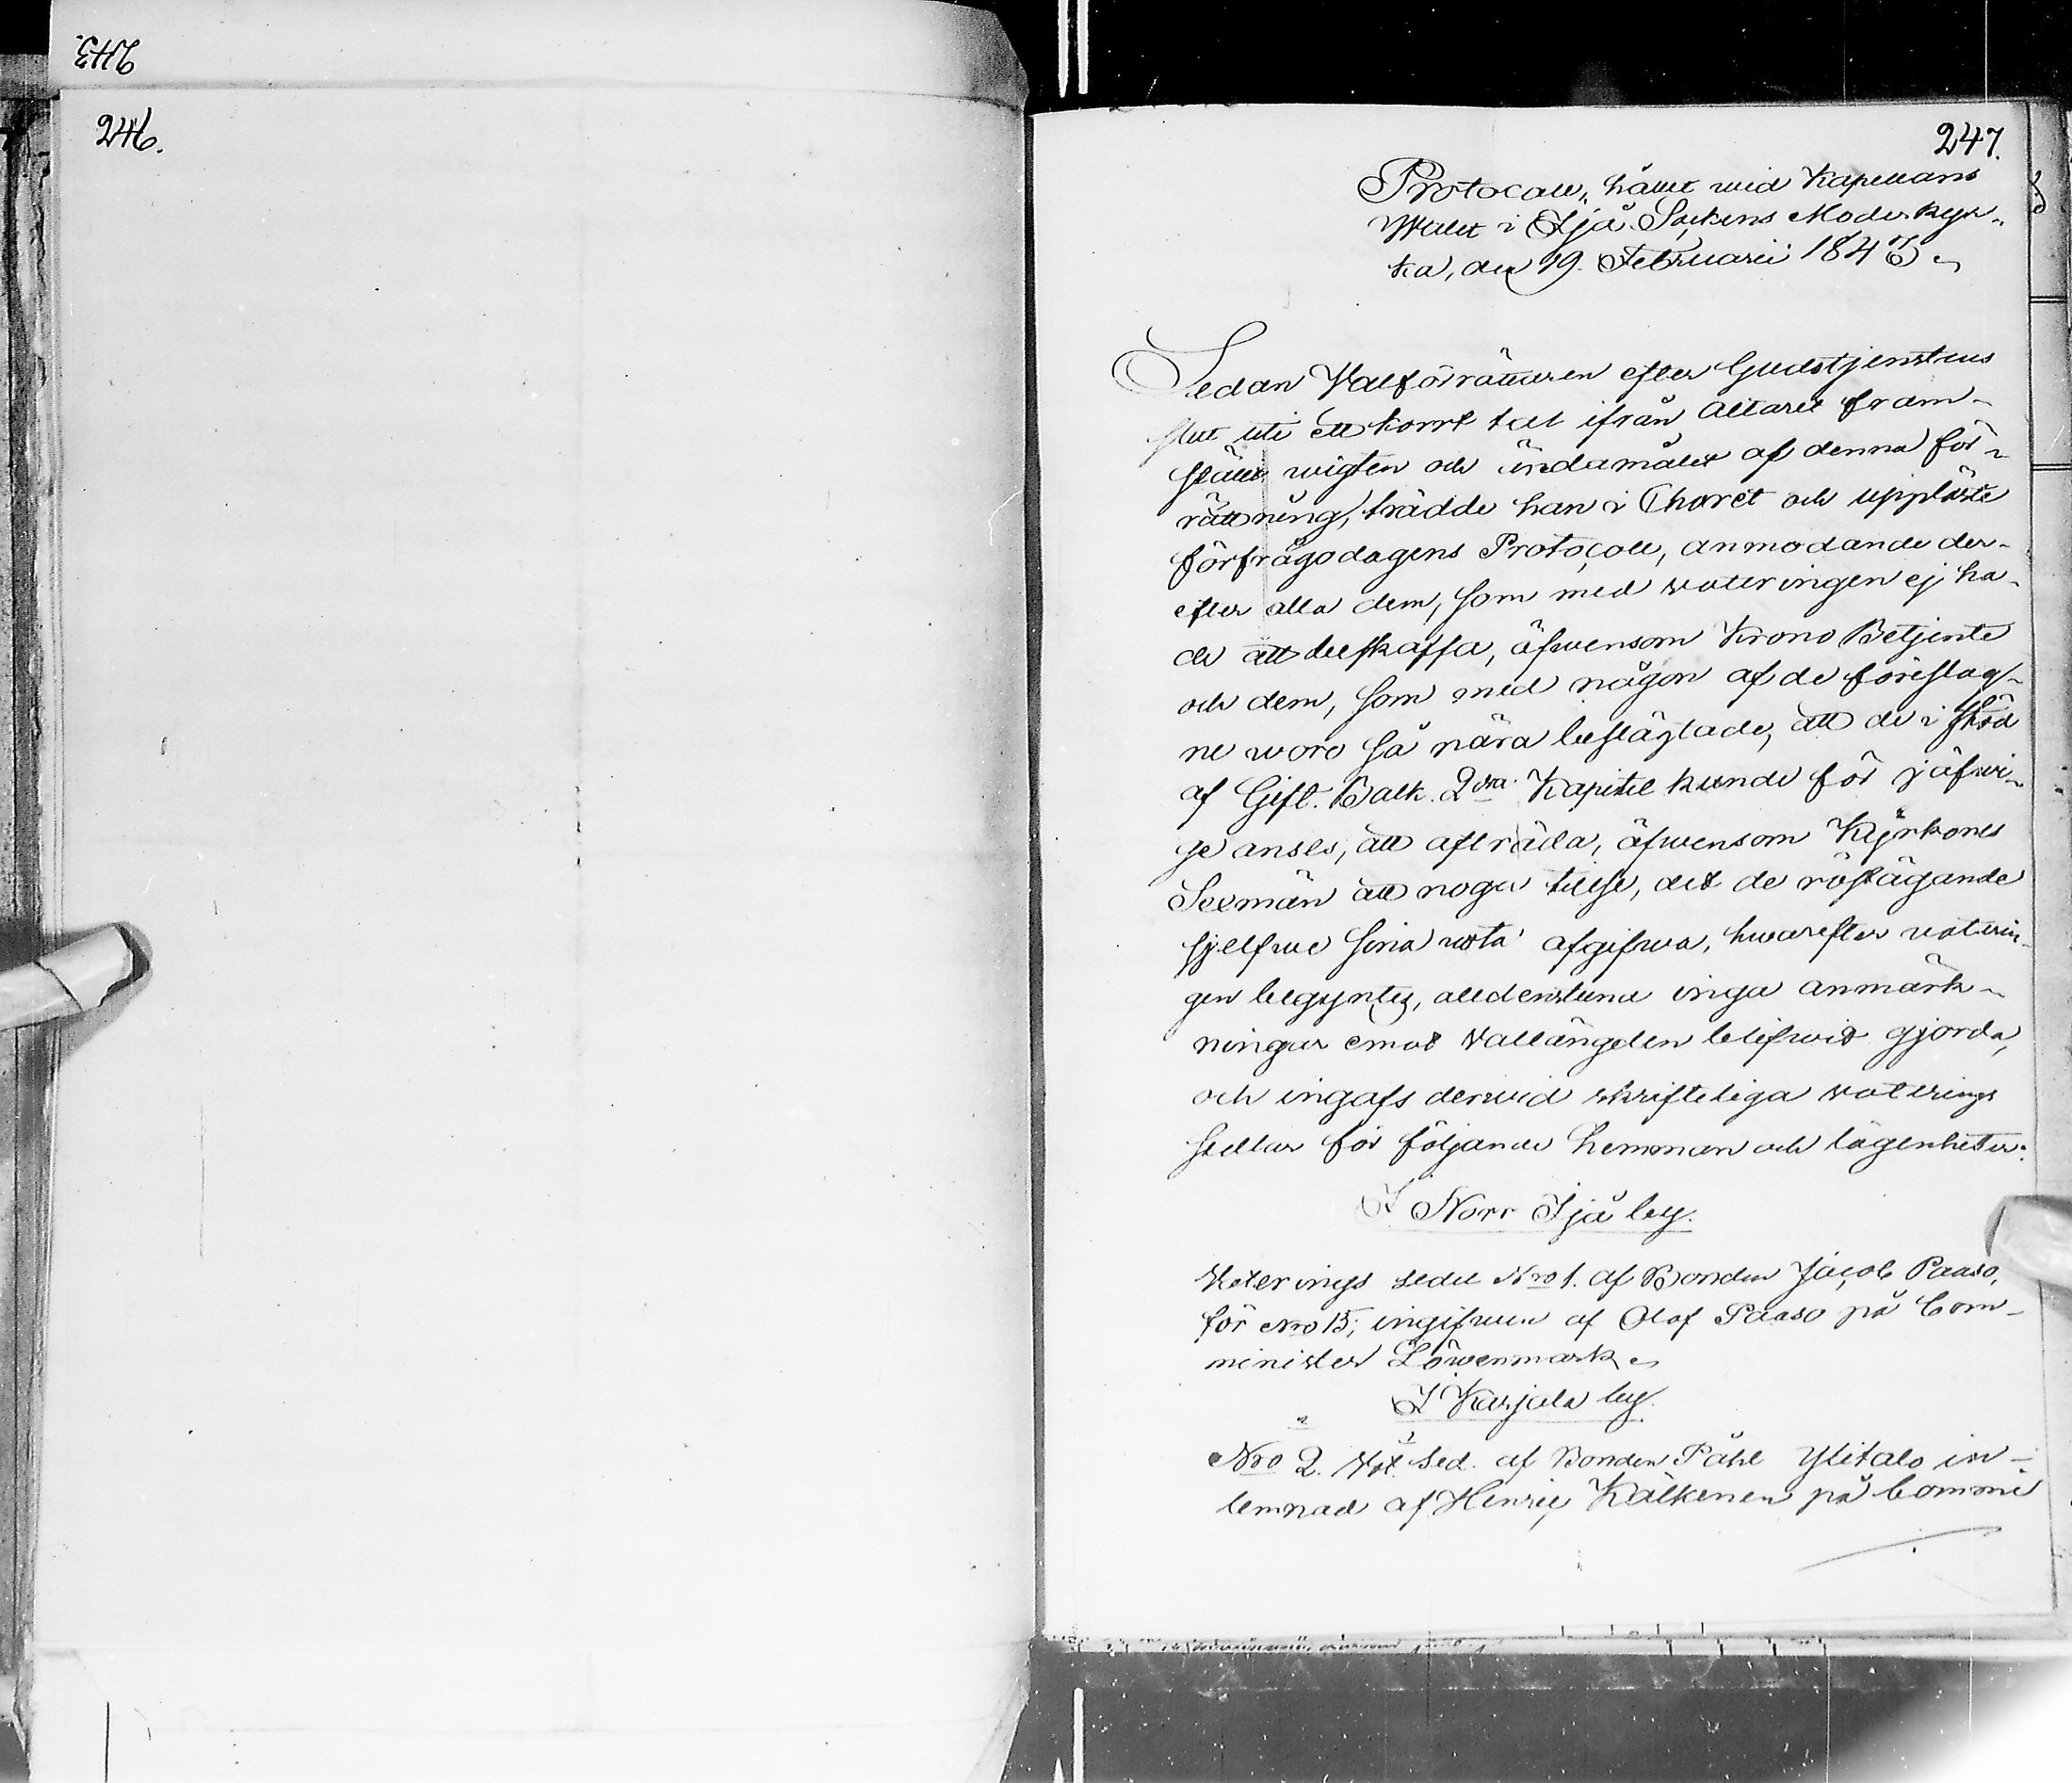 243.
246.
247.
Protocoll, hållet wid Kapellans
Walet i Ijå Sockens Moderkyr-
ka, den 19 Februarii 1843.
Sedan Valförrättaren efter Gudstjenstens
slut uti ett kort tal ifrån Altaret fram-
ställt wigten och ändamålet af denna för-
rättning, trädde han i Choret och uppläste
förfrågodagens Protocoll, anmodande der-
efter alla dem, som med voteringen ej ha-
de att beskaffa, äfwensom Krono Betjente
och dem, som med någon af de föreslag-
ne woro så nära beslägtade, att de i stöd
af Gift. Balk. 2dra Kapitel kunde för jäfwi-
ge anses, att afträda, äfwensom Kyrkones
Sexmän att noga tillse, det de röstägande
sjelfwe sina vota afgifwa, hwarefter voterin-
gen begyntes, alldenstund inga anmärk-
ningar emot Vallängden blifwit gjorda,
och ingafs derwid skrifteliga voterings
sedlar för följande hemman och lägenheter:
I Norr Ijå by.
Voterings sedel Nro 1. af Bonden Jacob Paaso,
för Nro 15, ingifwen af Olof Paaso på Com-
minister Löwenmark.
I Karjala by.
Nro 2. Vot. Sed. af Bonden Påhl Ylitalo in-
lemnad af Henric Kälkenen på Commi